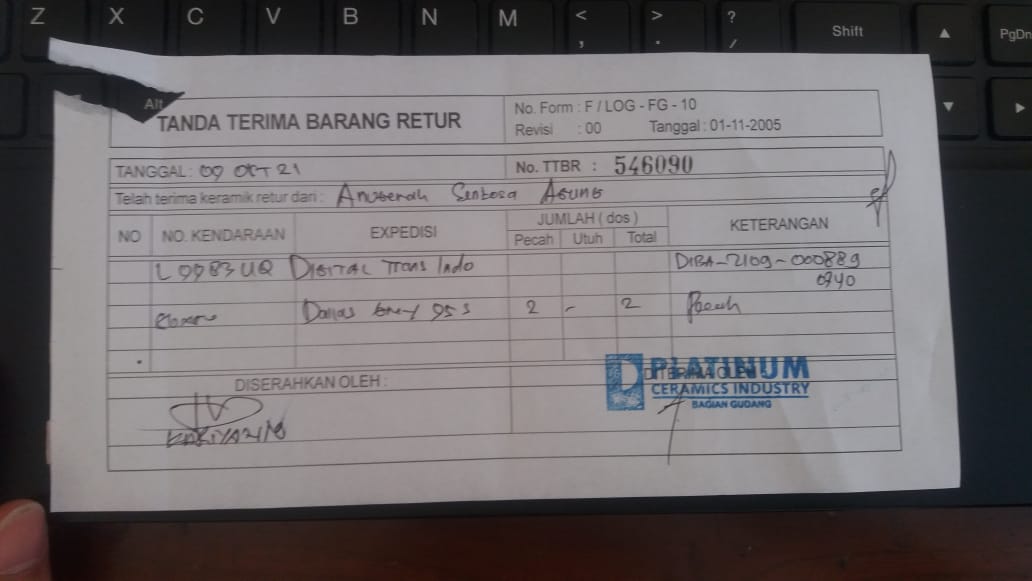 Z X C V B N M < , > . ? / Shift ▲ PgDn
Alt ▼ ►
TANDA TERIMA BARANG RETUR
No. Form : F / LOG - FG - 10
Revisi : 00 Tanggal : 01-11-2005
TANGGAL : 09 OKT 21 No. TTBR : 546090
Telah terima keramik retur dari : Anugerah Sentosa Agung
NO NO. KENDARAAN EXPEDISI JUMLAH ( dos ) KETERANGAN
Pecah Utuh Total
L 9983 UQ DIGITAL Trans Indo DIBA-2109-000889
0940
Dallas Grey 2 - 2 Pecah
DISERAHKAN OLEH : DITERIMA OLEH
PLATINUM
CERAMICS INDUSTRY
BAGIAN GUDANG